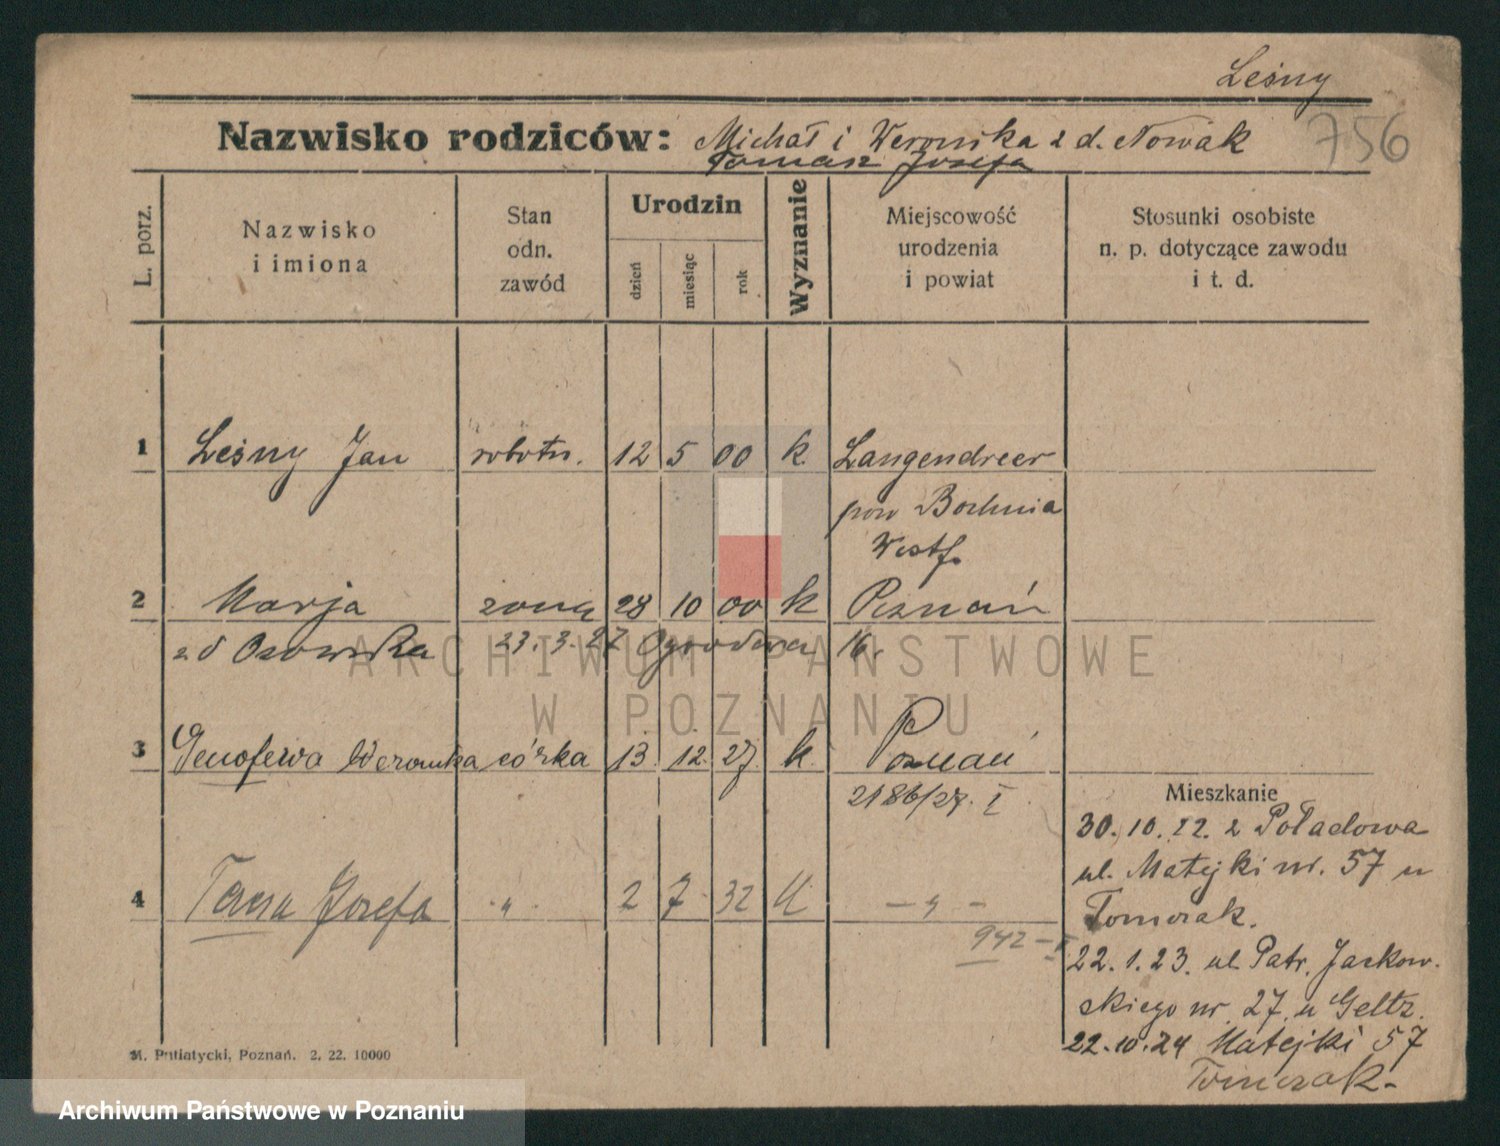 Leśny
Nazwisko rodziców: Michał i Weronika z d. Nowak
Tomasz Józefa
756
L. porz.
Nazwisko
i imiona
Stan
odn.
zawód
Urodzin
dzień
miesiąc
rok
Wyznanie
Miejscowość
urodzenia
i powiat
Stosunki osobiste
n. p. dotyczące zawodu
i t. d.
1 Leśny Jan robotn. 12 5 00 k. Langendreer
pow Bochnia
Westf.
2 Marja żona 28 10 00 k Poznań
z d Osowska 23. 3. 27 Ogrodowa 16.
3 Genofewa Weronika córka 13. 12. 27. k. Poznań
2186/27. I
4 Teresa Józefa " 2 7 32 k — " —
942 — I
Mieszkanie
30. 10. 22. z Poladowa
ul. Matejki nr. 57 u
Tomczak.
22. 1. 23. ul Patr. Jackow-
skiego nr. 27. u Geltz.
22. 10. 24 Matejki 57
Tomczak.
M. Putiatycki, Poznań. 2. 22. 10000
ARCHIWUM PAŃSTWOWE
W POZNANIU
Archiwum Państwowe w Poznaniu